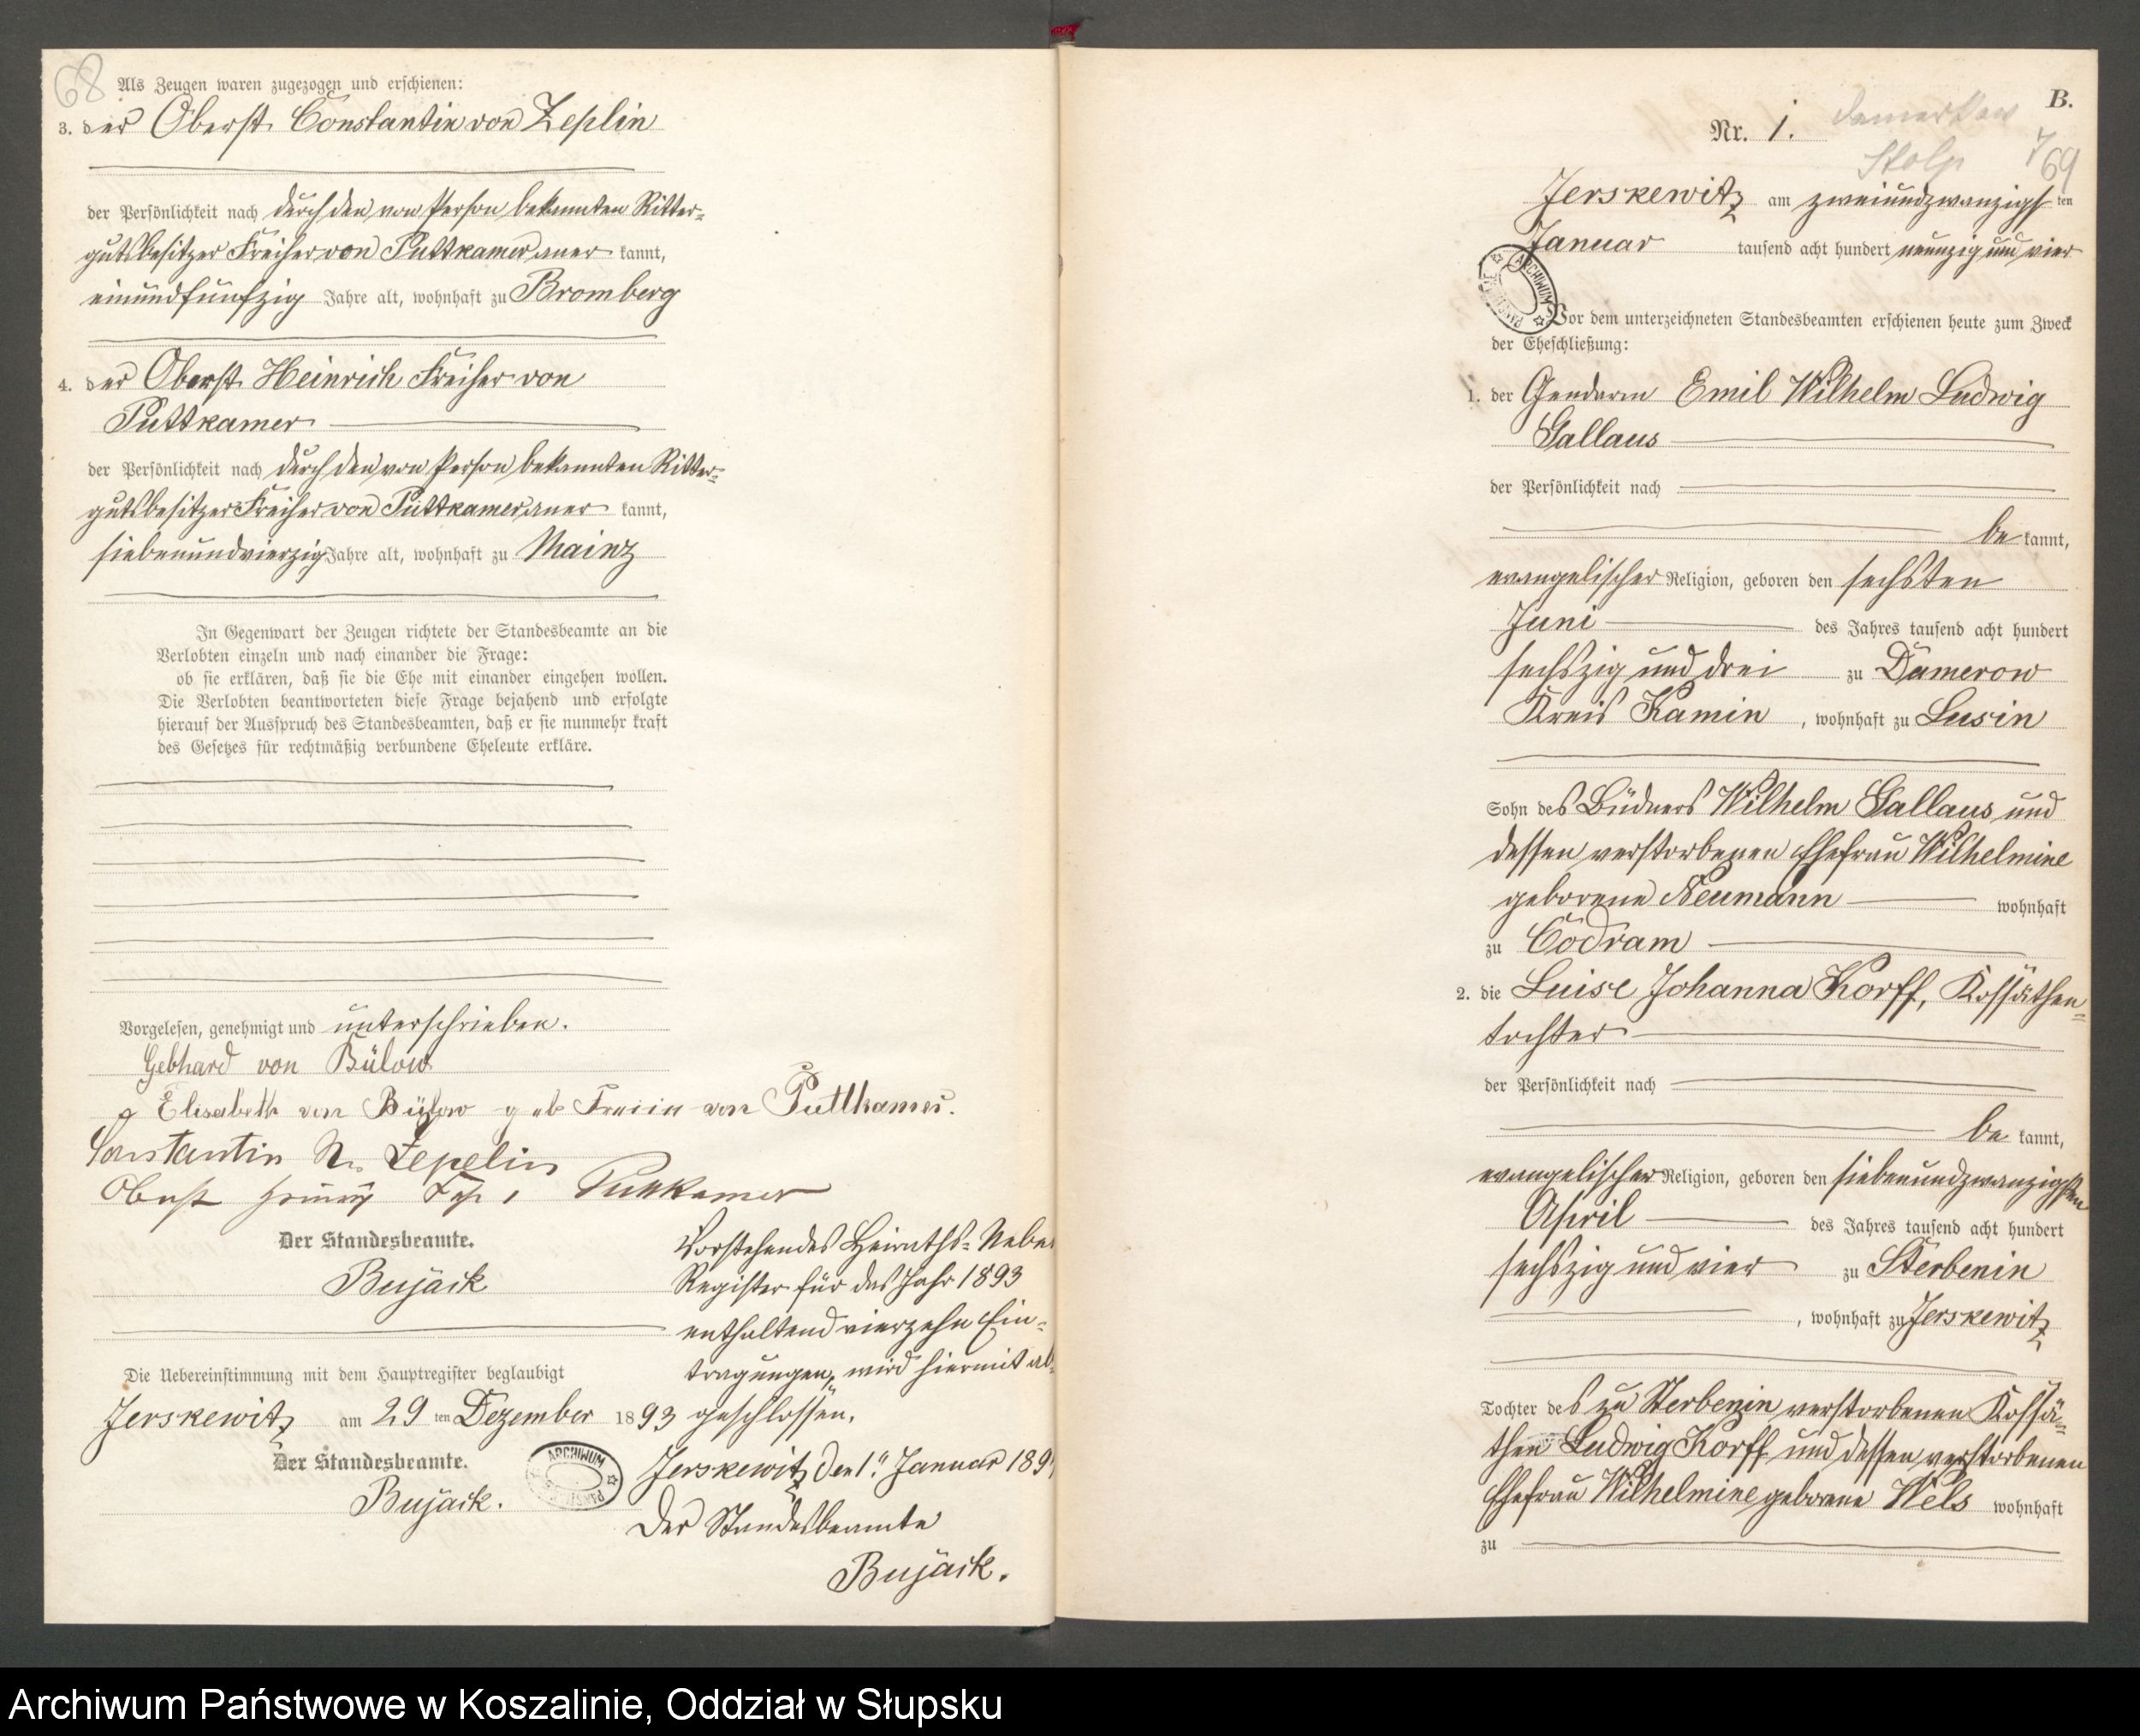 68
Als Zeugen waren zugezogen und erschienen:
3. der Oberst Constantin von Zeplin
der Persönlichkeit nach durch den von Person bekannten Ritter=
gutsbesitzer Freiherr von Puttkamer aner kannt,
einundfünfzig Jahre alt, wohnhaft zu Bromberg
4. der Oberst Heinrich Freiherr von
Puttkamer
der Persönlichkeit nach durch den von Person bekannten Ritter=
gutsbesitzer Freiherr von Puttkamer aner kannt,
siebenundvierzig Jahre alt, wohnhaft zu Mainz
In Gegenwart der Zeugen richtete der Standesbeamte an die
Verlobten einzeln und nach einander die Frage:
ob sie erklären, daß sie die Ehe mit einander eingehen wollen.
Die Verlobten beantworteten diese Frage bejahend und erfolgte
hierauf der Ausspruch des Standesbeamten, daß er sie nunmehr kraft
des Gesetzes für rechtmäßig verbundene Eheleute erkläre.
Vorgelesen, genehmigt und unterschrieben.
Gebhard von Bülow
Elisabeth von Bülow geb Freiin von Puttkamer.
Constantin v. Zepelin
Oberst Puttkamer
Der Standesbeamte.
Bujack
Die Uebereinstimmung mit dem Hauptregister beglaubigt
Jerskewitz am 29 ten Dezember 1893
Der Standesbeamte.
Bujack.
ARCHIWUM
Vorstehendes Heiraths=Neben
Register für das Jahr 1893
enthaltend vierzehn Ein=
tragungen, wird hiermit ab=
geschlossen.
Jerskewitz den 1. Januar 189
Der Standesbeamte
Bujack.
B.
Nr. 1.
Damerkow
Stolp
69
Jerskewitz am zweiundzwanzigs ten
Januar tausend acht hundert neunzig und vier
ARCHIWUM
Vor dem unterzeichneten Standesbeamten erschienen heute zum Zweck
der Eheschließung:
1. der Gendarm Emil Wilhelm Ludwig
Gallaus
der Persönlichkeit nach
be kannt,
evangelischer Religion, geboren den sechsten
Juni des Jahres tausend acht hundert
sechszig und drei zu Damerow
Kreis Kamin, wohnhaft zu Lusin
Sohn des Büdners Wilhelm Gallaus und
dessen verstorbenen Ehefrau Wilhelmine
geborene Neumann wohnhaft
zu Codram
2. die Luise Johanna Korff, Kossäthen=
tochter
der Persönlichkeit nach
be kannt,
evangelischer Religion, geboren den siebenundzwanzigsten
April des Jahres tausend acht hundert
sechszig und vier zu Sterbenin
, wohnhaft zu Jerskewitz
Tochter des zu Sterbenin verstorbenen Kossä=
then Ludwig Korff und dessen verstorbenen
Ehefrau Wilhelmine geborene Wels wohnhaft
zu
Archiwum Państwowe w Koszalinie, Oddział w Słupsku